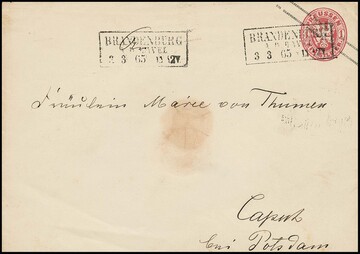 BRANDENBURG
A. D. HAVEL
3 3 65
BRANDENBURG
A. D. HAVEL
3 3 65
PREUSSEN
Fräulein Marie von Thümen
Caputh
bei Potsdam